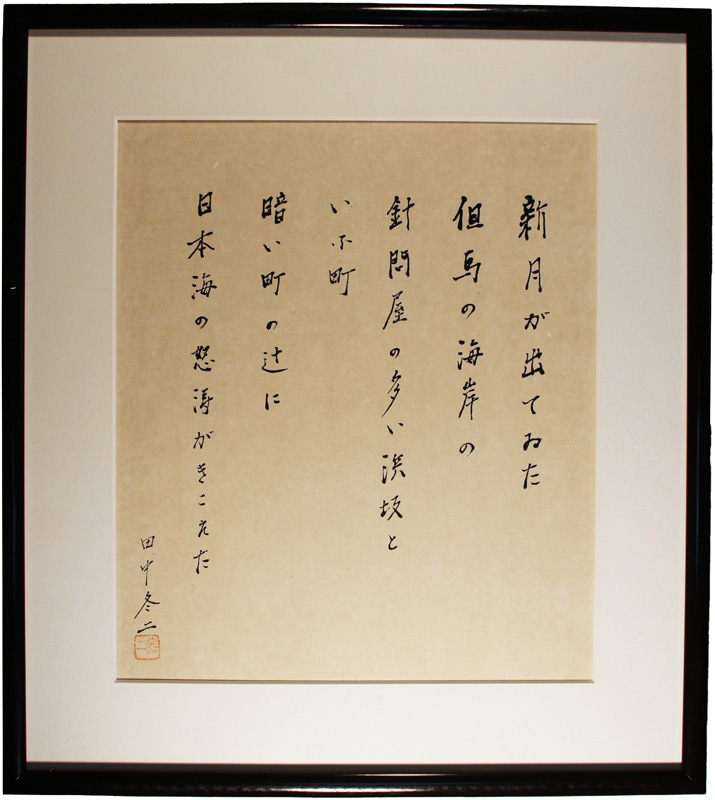 新月が出てゐた
但馬の海岸の
針問屋の多い浜坂と
いふ町
暗い町の辻に
日本海の怒涛がきこえた
田中冬二